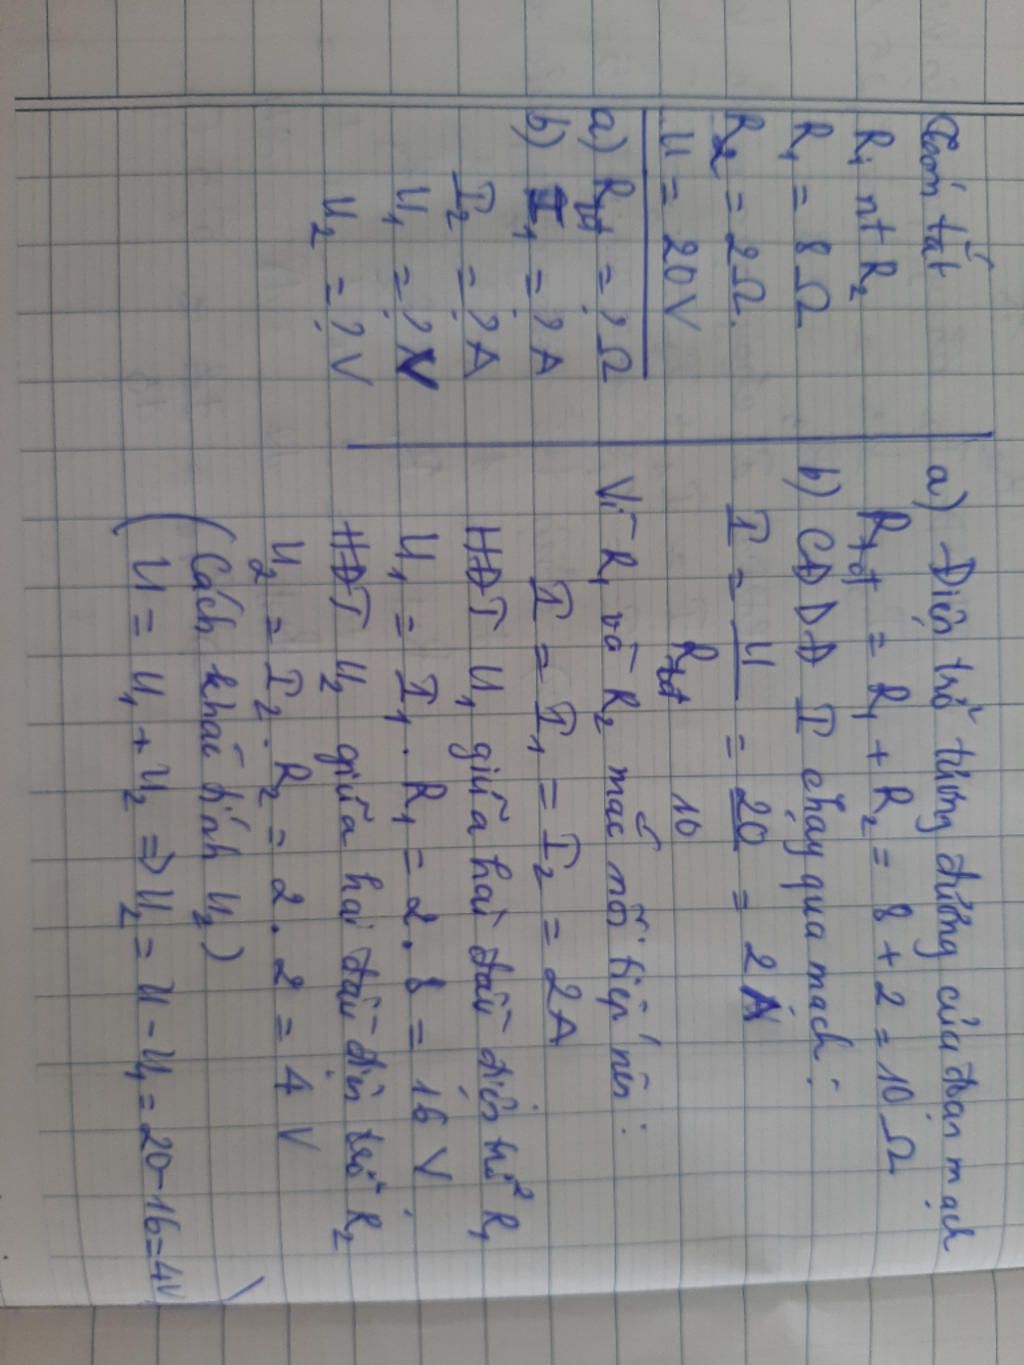 Tóm tắt
R₁ nt R₂
R₁ = 8 Ω
R₂ = 2 Ω.
U = 20 V
a) Rtđ = ? Ω
b) I₁ = ? A
I₂ = ? A
U₁ = ? V
U₂ = ? V
a) Điện trở tương đương của đoạn mạch
Rtđ = R₁ + R₂ = 8 + 2 = 10 Ω
b) CĐDĐ I chạy qua mạch:
I = U/Rtđ = 20/10 = 2 A
Vì R₁ và R₂ mắc nối tiếp nên:
I = I₁ = I₂ = 2A
HĐT U₁ giữa hai đầu điện trở R₁
U₁ = I₁ . R₁ = 2 . 8 = 16 V
HĐT U₂ giữa hai đầu điện trở R₂
U₂ = I₂ . R₂ = 2 . 2 = 4 V
(Cách khác tính U₂)
(U = U₁ + U₂ ⇒ U₂ = U - U₁ = 20 - 16 = 4V)